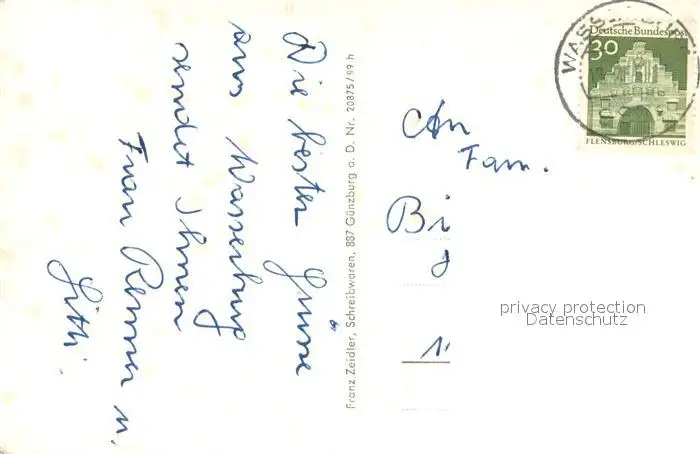 Die besten Grüsse
aus Wasserburg
sendet Ihnen
Frau Renner u.
Gitti.
Franz Zeidler, Schreibwaren, 887 Günzburg a. D. Nr. 20875/99 h
WASSERBURG
Deutsche Bundespost
30
FLENSBURG/SCHLESWIG
An
Fam.
Bi
privacy protection
Datenschutz